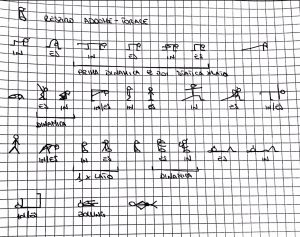 RESPIRO ADDOME - TORACE
IN ES IN ES IN ES IN
PRIMA DINAMICA E POI STATICA
ES IN IN/ES IN ES IN ES IN
DINAMICA
IN IN/ES IN ES IN ES IN ES IN
1 x LATO DINAMICA
IN/ES ROLLING